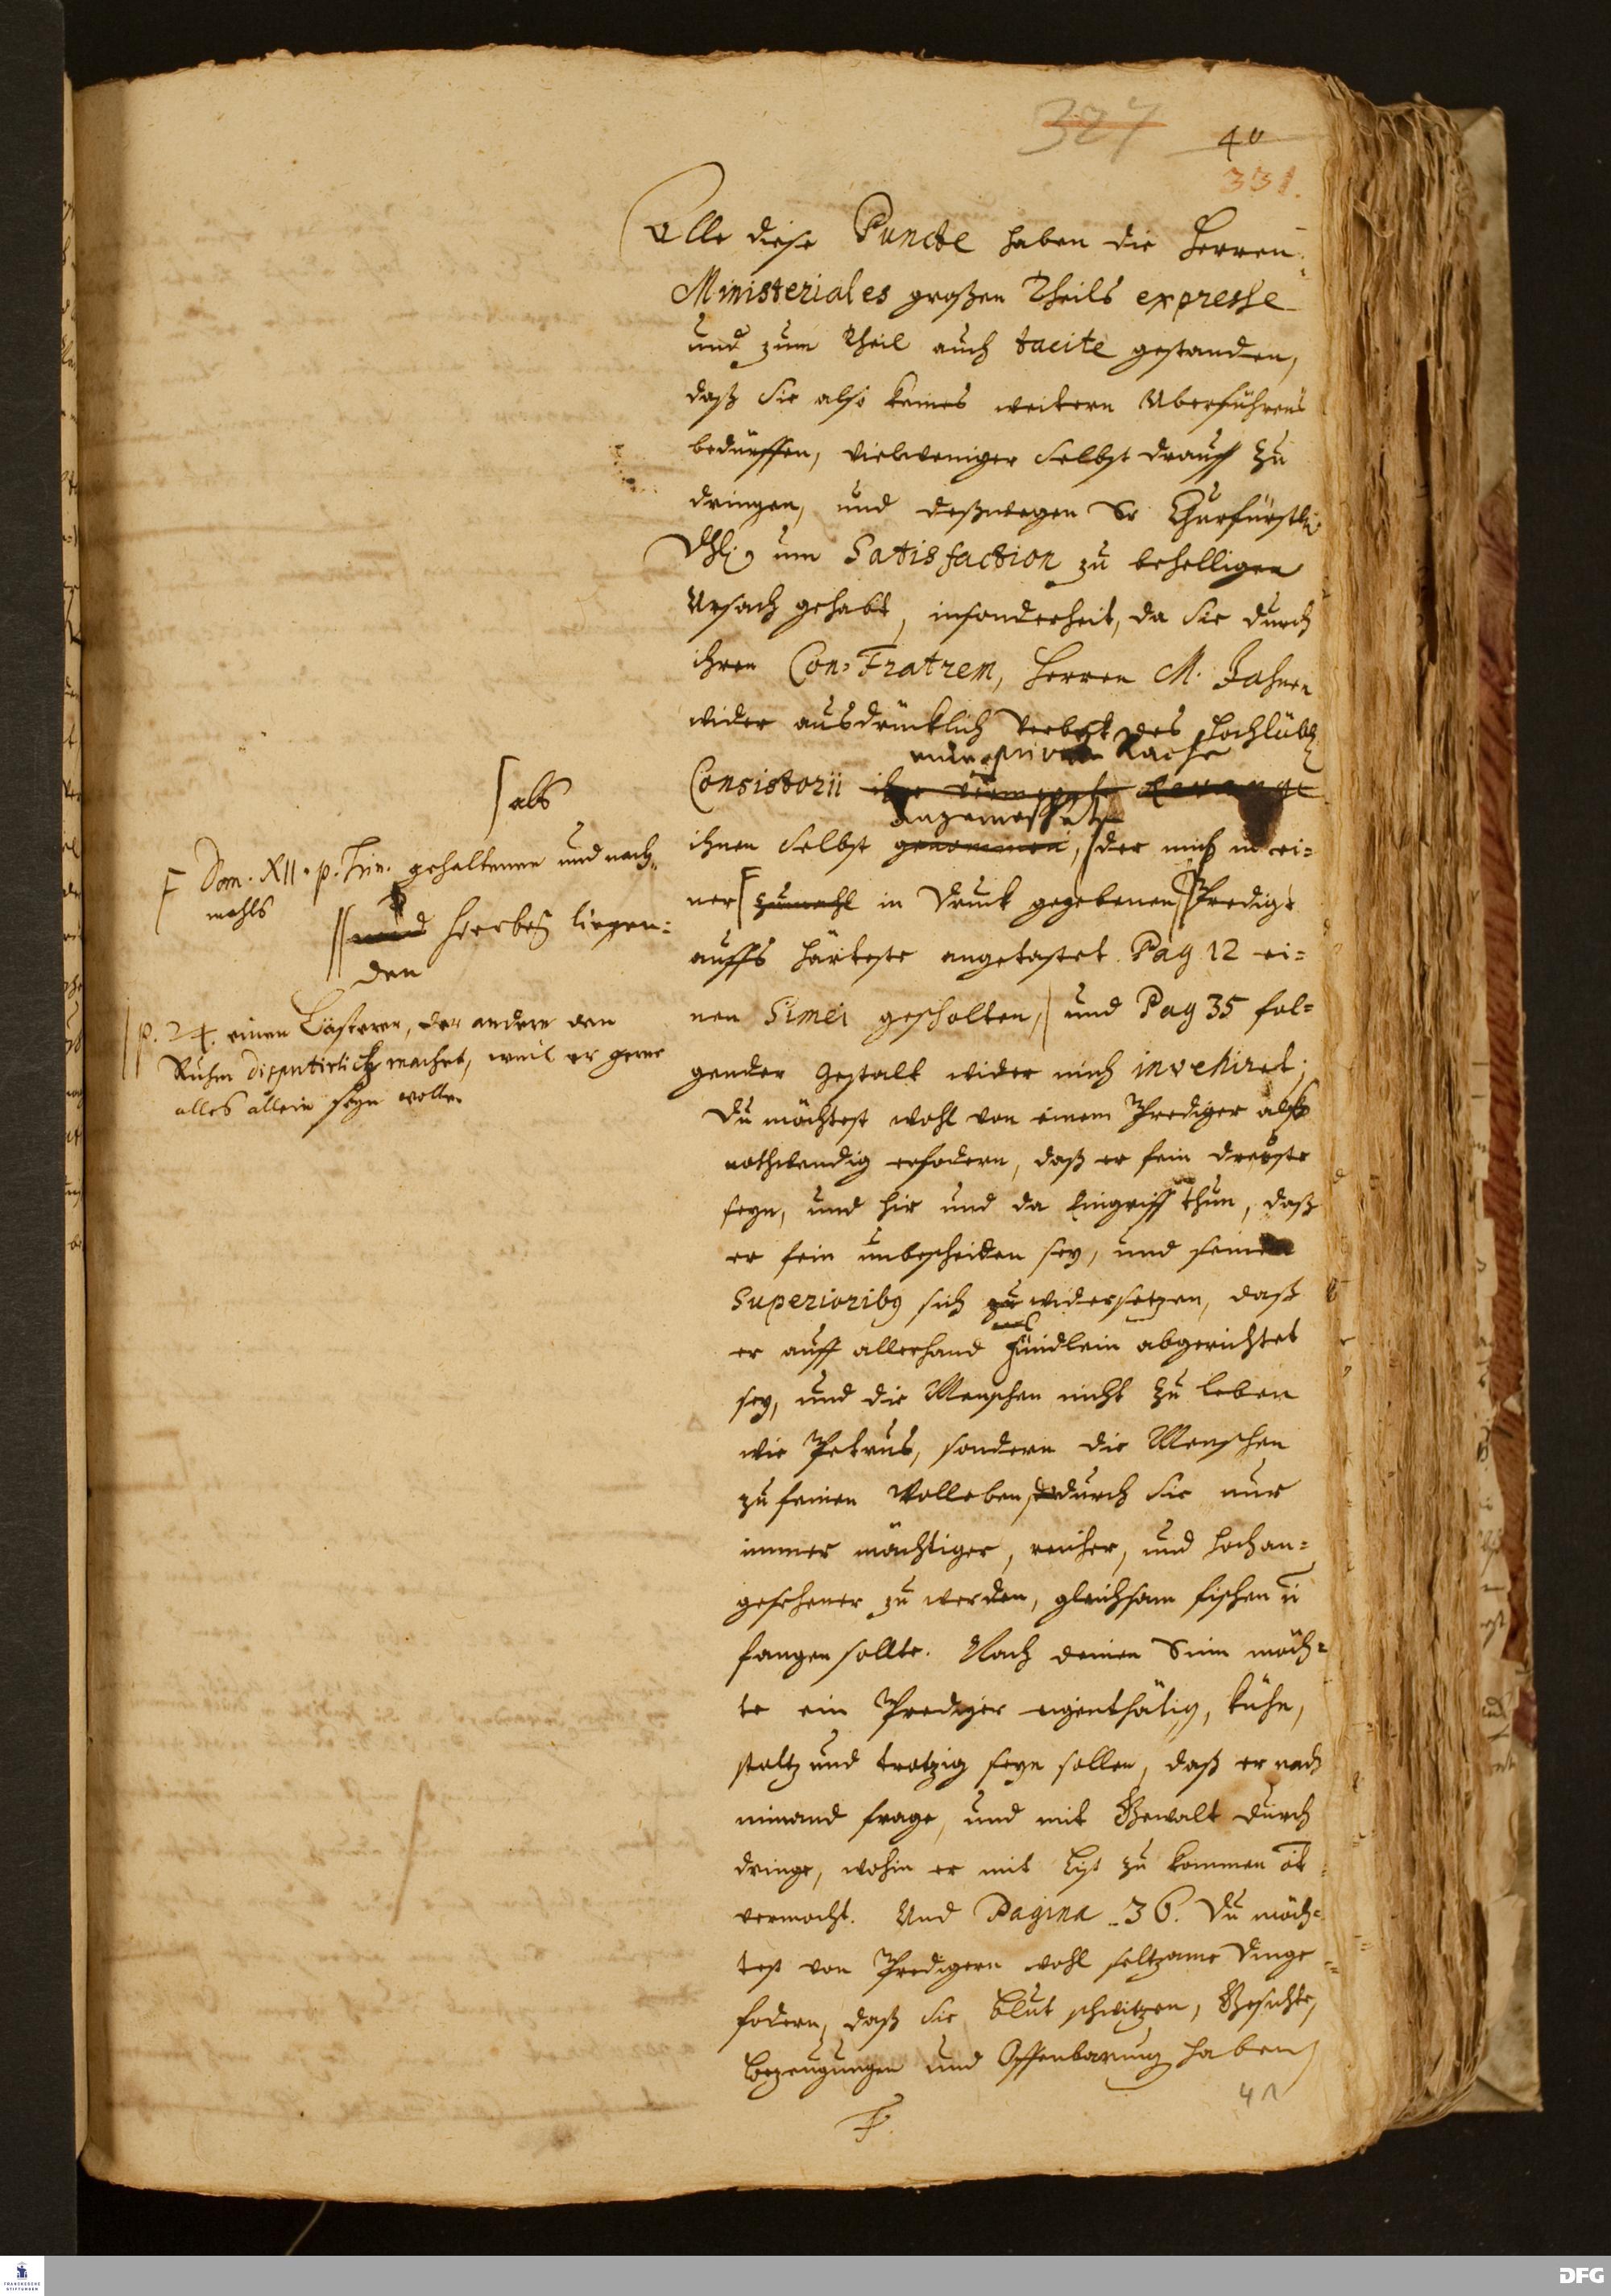 327
40
331.
Alle diese Puncte haben die Herren
Ministeriales großen Theils expresse
und zum Theil auch tacite gestanden,
daß Sie also keines weitern Uberführens
bedürffen, vielweniger Selbst drauff zu
dringen, und deßwegen Sr Churfürstl.
Dhl. um Satisfaction zu behelligen
Ursach gehabt, insonderheit, da Sie durch
ihren Con-Fratrem, Herren M. Jahnen
wider ausdrücklich Verbot des Hochlöbl.
eine Rache
Consistorii Revange
angemasset
ihnen Selbst genommen, der mich in ei=
ner zumahl in Druck gegebenen Predigt
auffs härteste angetastet Pag 12 ei=
nen Simei gescholten, und Pag 35 fol=
gender Gestalt wider mich invehiret;
Du möchtest wohl von einem Prediger als
nothwendig erfodern, daß er fein dreuste
seyn, und hir und da Eingriff thun, daß
er fein unbescheiden sey, und seinen
Superioribus sich zu widersetzen, daß
er auff allerhand Fündlein abgerichtet
sey, und die Menschen nicht zu leben
wie Petrus, sondern die Menschen
zu seinen Volleben, dadurch Sie nur
immer mächtiger, reicher, und hochan=
gesehener zu werden, gleichsam fischen u
fangen sollte. Nach deinen Sinn möch=
te ein Prediger eigenthätig, kühn,
stoltz und trotzig seyn sollen, daß er nach
nimand frage, und mit Gewalt durch
dringe, wohin er mit List zu kommen nit
vermocht. Und Pagina 36. Du möch=
test von Predigern wohl seltzame Dinge
fodern, daß Sie Blut schwitzen, Gesichte,
Bezeugungen und Offenbarung haben
41
F.
als
F Dom. XII. p. Trin. gehaltenen und nach=
mahls
und hierbey liegen=
den
p. 24. einen Lästerer, der andern den
Ruhm disputirlich machet, weil er gerne
alles allein seyn wolle.
TRANCKESCHE
STIFTUNGEN
DFG